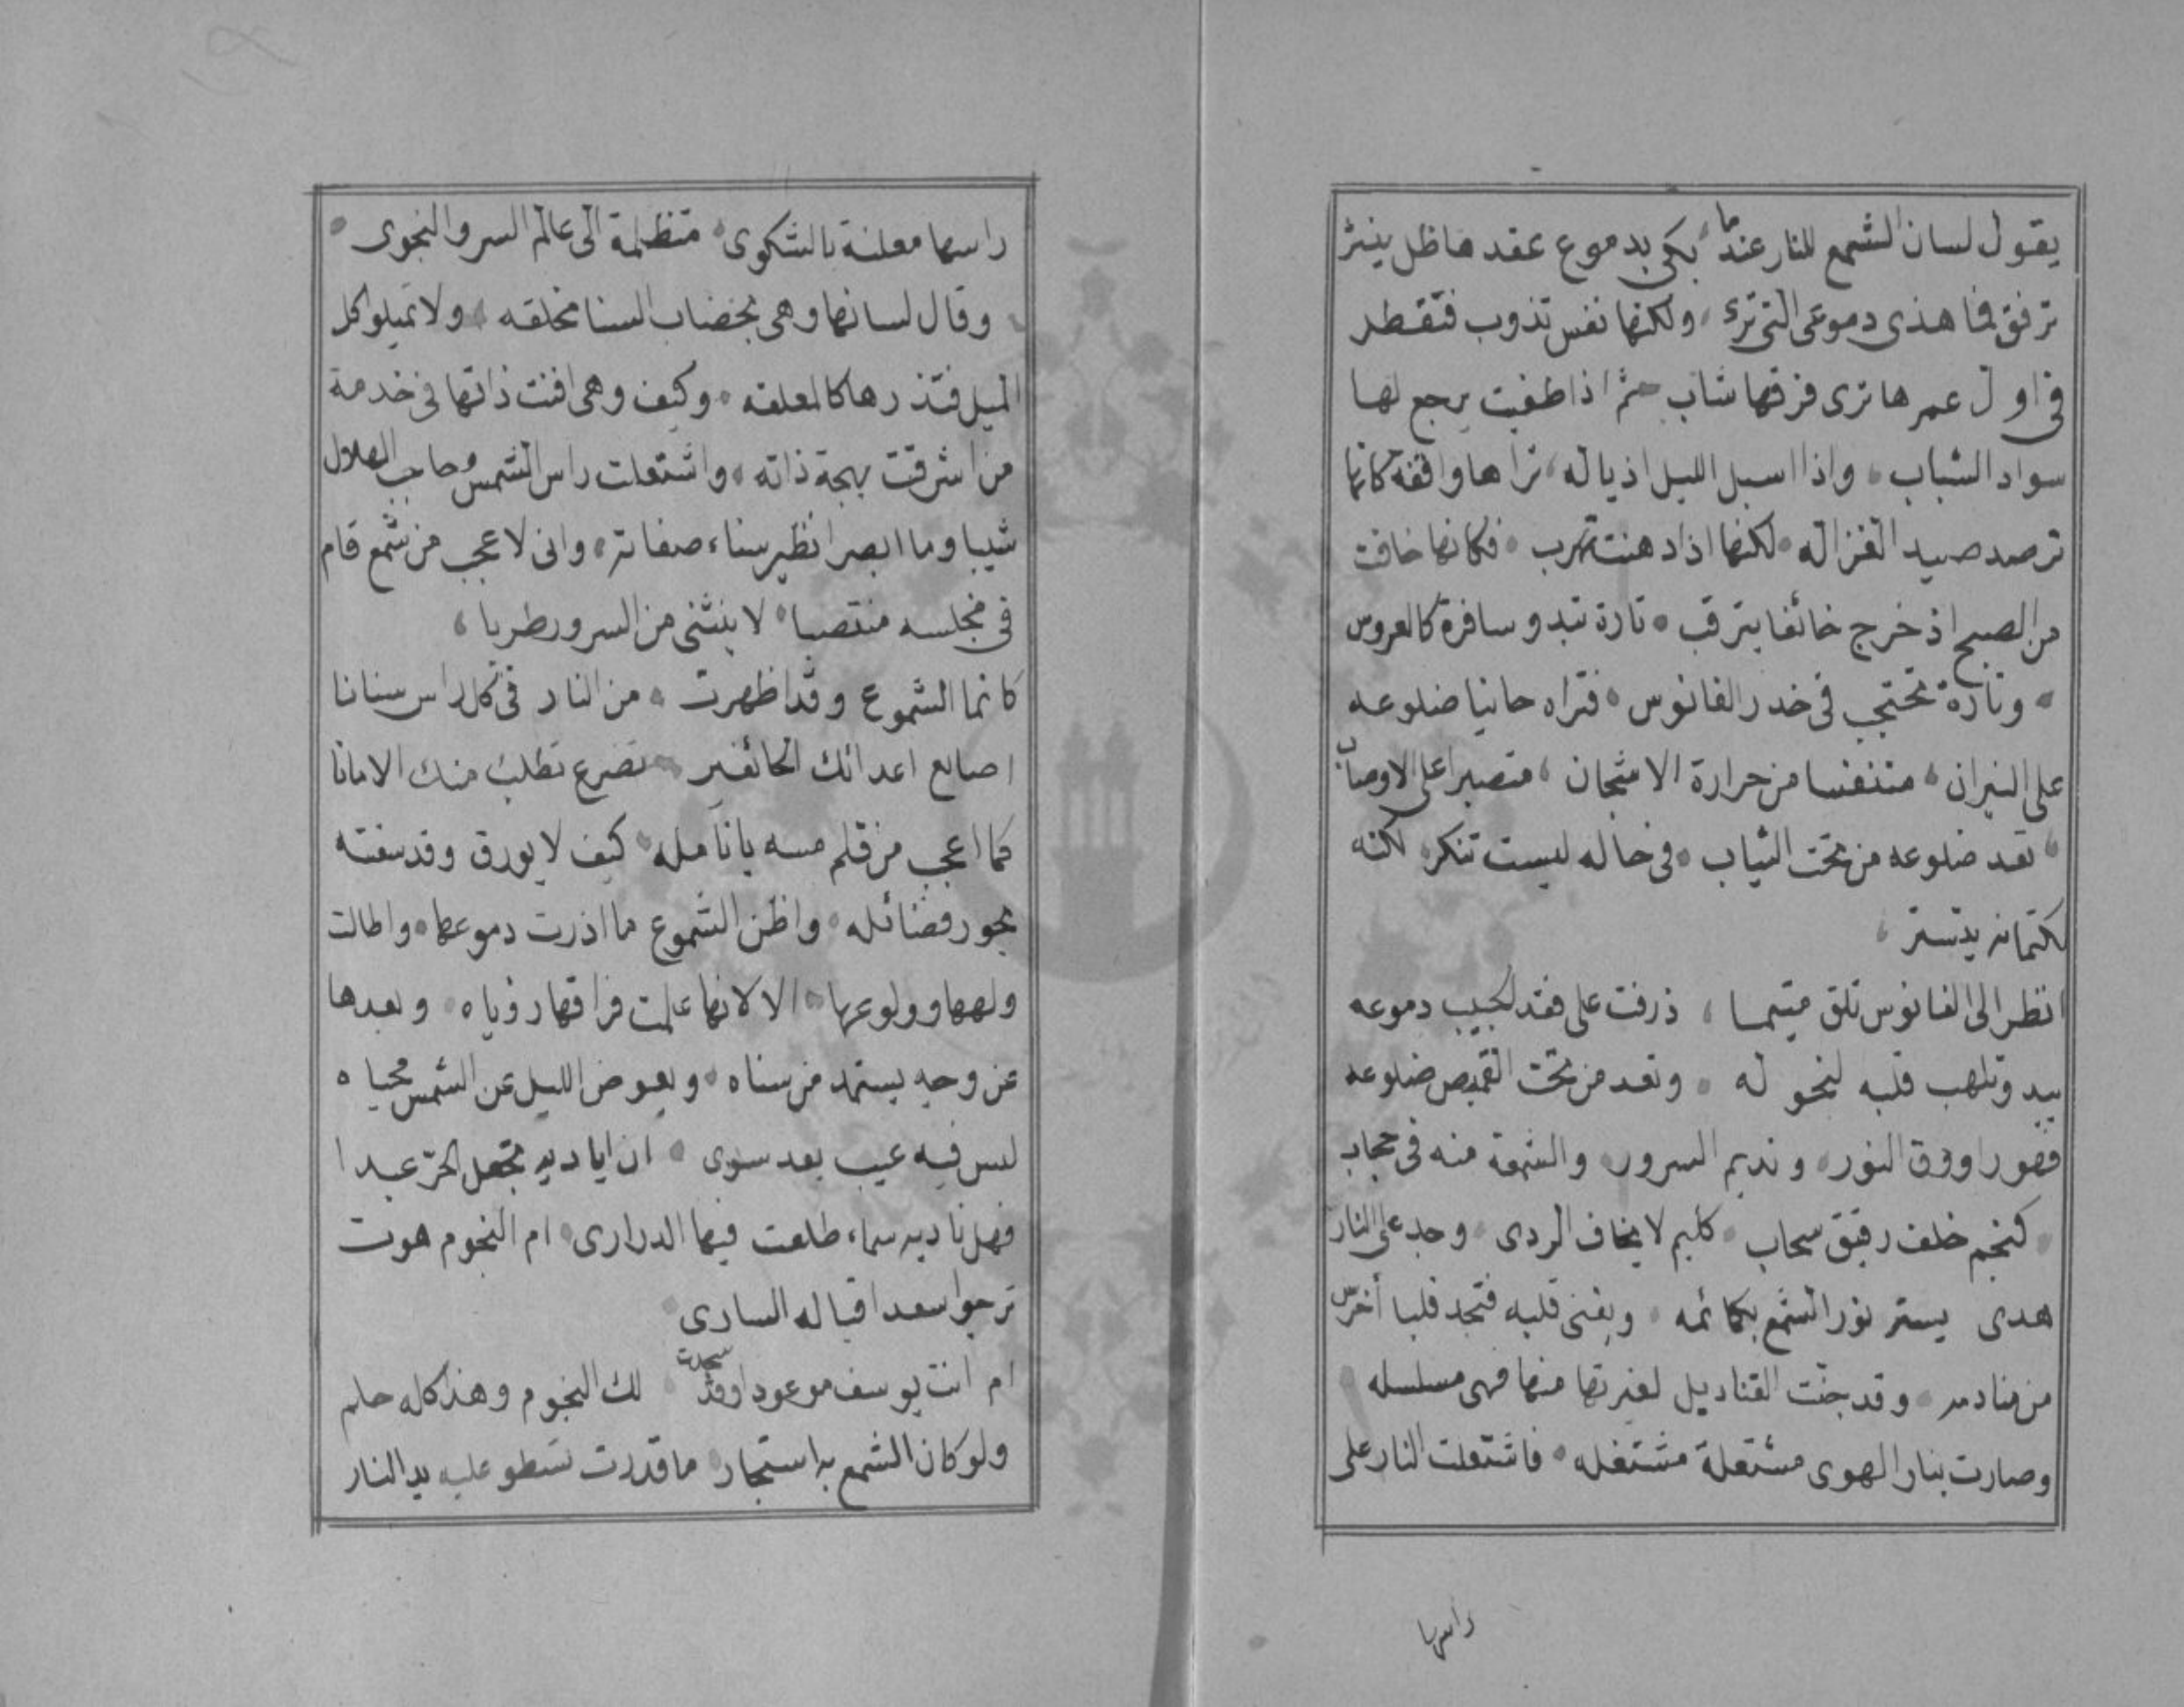 يقول لسان الشمع للنار عندما بكى بدموع عقدها ظل ينثر
ترفق فما هذى دموعى التى ترى ولكنها نفس تذوب فتقطر
فى اول عمرها ترى فرقها شاب ثم اذا طفيت يرجع لها
سواد الشباب واذا اسبل الليل اذياله تراها واقفة كانما
ترصد صيد الغزاله لكنها اذا دهنت تهرب فكانها خافت
من الصبح اذ خرج خائفا يترقب تارة تبدو سافرة كالعروس
وتارة تحتجب فى خدر الفانوس فتراه حانيا ضلوعه
على النيران متنفسا من حرارة الاشجان متصبرا على الاوصاب
تعد ضلوعه من تحت الثياب فى حاله ليست تنكر لكنه
بكتمانه يتستر
انظر الى الفانوس تلق متيما ذرفت على فقد الحبيب دموعه
يبدو تلهب قلبه لنحوله وتعد من تحت القميص ضلوعه
فهو راووق النور ونديم السرور والشمعة منه فى حجاب
كنجم خلف رقيق سحاب كليم لا يخاف الردى وجد على النار
هدى يستر نور الشمع بكمائمه ويفنى قلبه فتجد قلبا أخرس
من منادمه وقد جنت القناديل لغيرتها منها فهى مسلسله
وصارت بنار الهوى مشتعلة مشتغله فاشتعلت النار على
راسها
راسها معلنة بالشكوى متظلمة الى عالم السر والنجوى
وقال لسانها وهى بخضاب السنا مخلقه ولا تميلو كل
الميل فتذرها كالمعلقه وكيف وهى افنت ذاتها فى خدمة
من اشرقت بهجة ذاته واشتعلت راس الشمس وحاجب الهلال
شيبا وما ابصرا نظير سناء صفاته وانى لاعجب من شمع قام
فى مجلسه منتصبا لا ينثنى من السرور طربا
كانما الشموع وقد اظهرت من النار فى كل راس سنانا
اصابع اعدائك الخائفين تضرع تطلب منك الامانا
كما اعجب من قلم مسه بانامله كيف لا يورق وقد سقته
بحور فضائله واظن الشموع ما اذرت دموعها واطالت
ولهها وولوعها الا لانها علمت فراقها رؤياه وبعدها
عن وجه يستمد من سناه ويعوض الليل عن الشمس محياه
ليس فيه عيب بعد سوى ان اياديه تجعل الحرّ عبدا
فهل ناديه سماء طلعت فيها الدرارى ام النجوم هوت
ترجوا سعد اقباله السارى
ام انت يوسف موعودا وقد سجدت لك النجوم وهذا كله حلم
ولو كان الشمع به استجار ما قدرت تسطو عليه يد النار